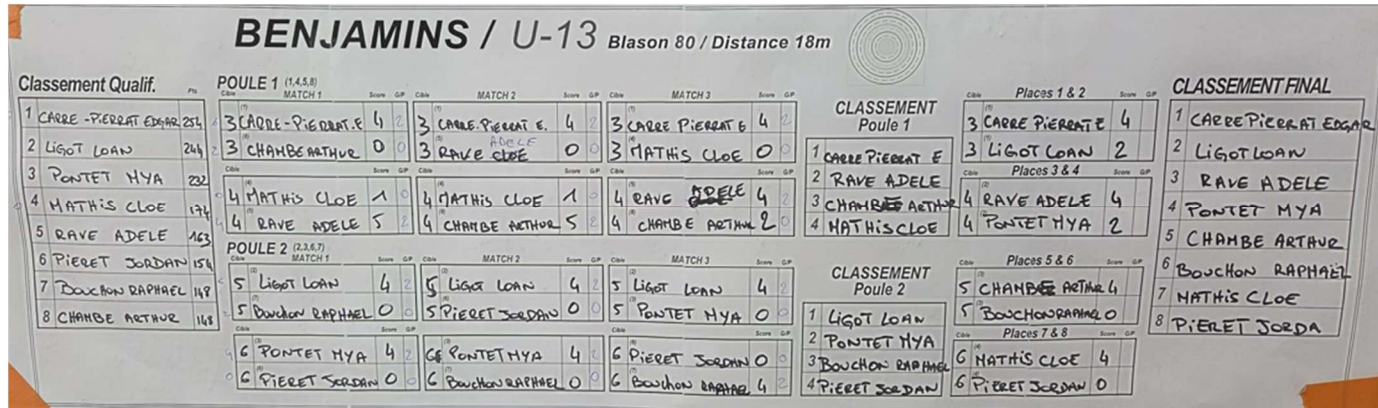 BENJAMINS / U-13 Blason 80 / Distance 18m
Classement Qualif. Pts
1 CARRE-PIERRAT EDGAR 254
2 LIGOT LOAN 244
3 PONTET MYA 232
4 MATHIS CLOE 174
5 RAVE ADELE 163
6 PIERET JORDAN 154
7 BOUCHON RAPHAEL 148
8 CHAMBE ARTHUR 148
POULE 1 (1,4,5,8)
Cible MATCH 1 Score G/P
3 CARRE-PIERRAT.E 4 2
3 CHAMBE ARTHUR 0 0
Cible Score G/P
4 MATHIS CLOE 1 0
4 RAVE ADELE 5 2
Cible MATCH 2 Score G/P
3 CARRE.PIERRAT E. 4 2
ADELE
3 RAVE CLOE 0 0
Cible Score G/P
4 MATHIS CLOE 1 0
4 CHAMBE ARTHUR 5 2
Cible MATCH 3 Score G/P
3 CARRE PIERRAT E 4 2
3 MATHIS CLOE 0 0
Cible Score G/P
4 RAVE ADELE 4 2
4 CHAMBE ARTHUR 2 0
POULE 2 (2,3,6,7)
Cible MATCH 1 Score G/P
5 LIGOT LOAN 4 2
5 BOUCHON RAPHAEL 0 0
Cible Score G/P
6 PONTET MYA 4 2
6 PIERET JORDAN 0 0
Cible MATCH 2 Score G/P
5 LIGOT LOAN 4 2
5 PIERET JORDAN 0 0
Cible Score G/P
6 PONTET MYA 4 2
6 BOUCHON RAPHAEL 0 0
Cible MATCH 3 Score G/P
5 LIGOT LOAN 4 2
5 PONTET MYA 0 0
Cible Score G/P
6 PIERET JORDAN 0 0
6 BOUCHON RAPHAEL 4 2
CLASSEMENT
Poule 1
1 CARRE PIERRAT E
2 RAVE ADELE
3 CHAMBE ARTHUR
4 MATHIS CLOE
CLASSEMENT
Poule 2
1 LIGOT LOAN
2 PONTET MYA
3 BOUCHON RAPHAEL
4 PIERET JORDAN
Cible Places 1 & 2 Score G/P
3 CARRE PIERRAT E 4
3 LIGOT LOAN 2
Cible Places 3 & 4 Score G/P
4 RAVE ADELE 4
4 PONTET MYA 2
Cible Places 5 & 6 Score G/P
5 CHAMBE ARTHUR 4
5 BOUCHON RAPHAEL 0
Cible Places 7 & 8 Score G/P
6 MATHIS CLOE 4
6 PIERET JORDAN 0
CLASSEMENT FINAL
1 CARRE PIERRAT EDGAR
2 LIGOT LOAN
3 RAVE ADELE
4 PONTET MYA
5 CHAMBE ARTHUR
6 BOUCHON RAPHAËL
7 MATHIS CLOE
8 PIERET JORDA